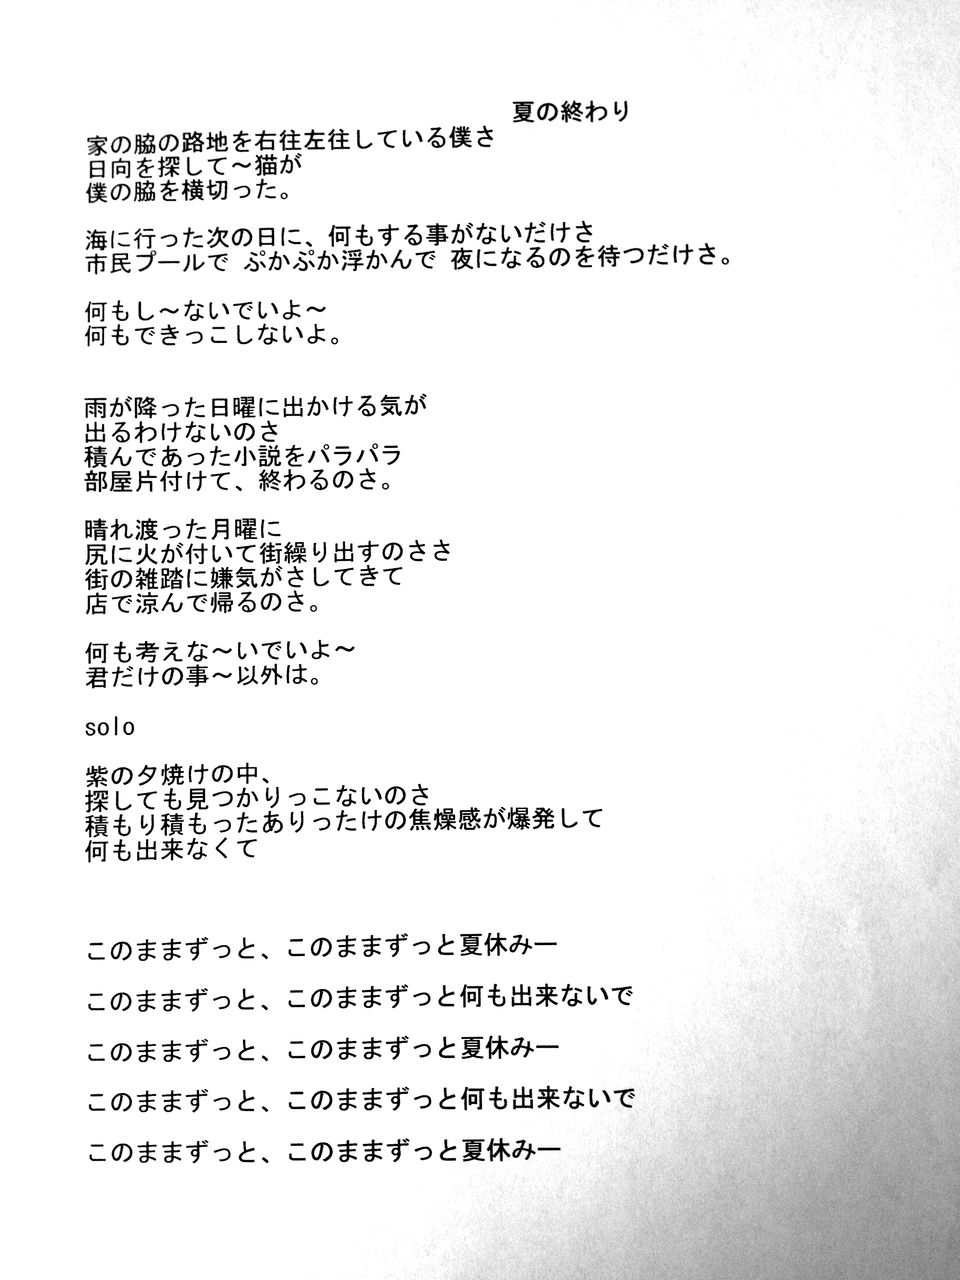 夏の終わり
家の脇の路地を右往左往している僕さ
日向を探して～猫が
僕の脇を横切った。
海に行った次の日に、何もする事がないだけさ
市民プールで ぷかぷか浮かんで 夜になるのを待つだけさ。
何もし～ないでいよ～
何もできっこしないよ。
雨が降った日曜に出かける気が
出るわけないのさ
積んであった小説をパラパラ
部屋片付けて、終わるのさ。
晴れ渡った月曜に
尻に火が付いて街繰り出すのささ
街の雑踏に嫌気がさしてきて
店で涼んで帰るのさ。
何も考えな～いでいよ～
君だけの事～以外は。
solo
紫の夕焼けの中、
探しても見つかりっこないのさ
積もり積もったありったけの焦燥感が爆発して
何も出来なくて
このままずっと、このままずっと夏休みー
このままずっと、このままずっと何も出来ないで
このままずっと、このままずっと夏休みー
このままずっと、このままずっと何も出来ないで
このままずっと、このままずっと夏休みー